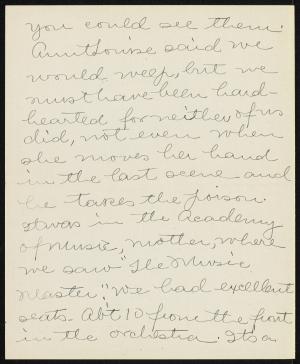 you could see them.
Aunt Louise said we
would weep, but we
must have been hard-
hearted for neither of us
did, not even when
she moves her hand
in the last scene and
he takes the poison.
It was in the Academy
of Music, mother, where
we saw "The Music
Master." We had excellent
seats. Abt 10 from the front
in the orchestra. It's a